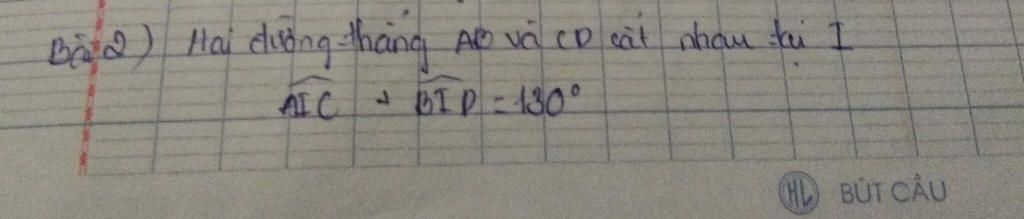 Bài 2) Hai đường thẳng AB và CD cắt nhau tại I
AIC + BID = 130°
HL BÚT CÂU